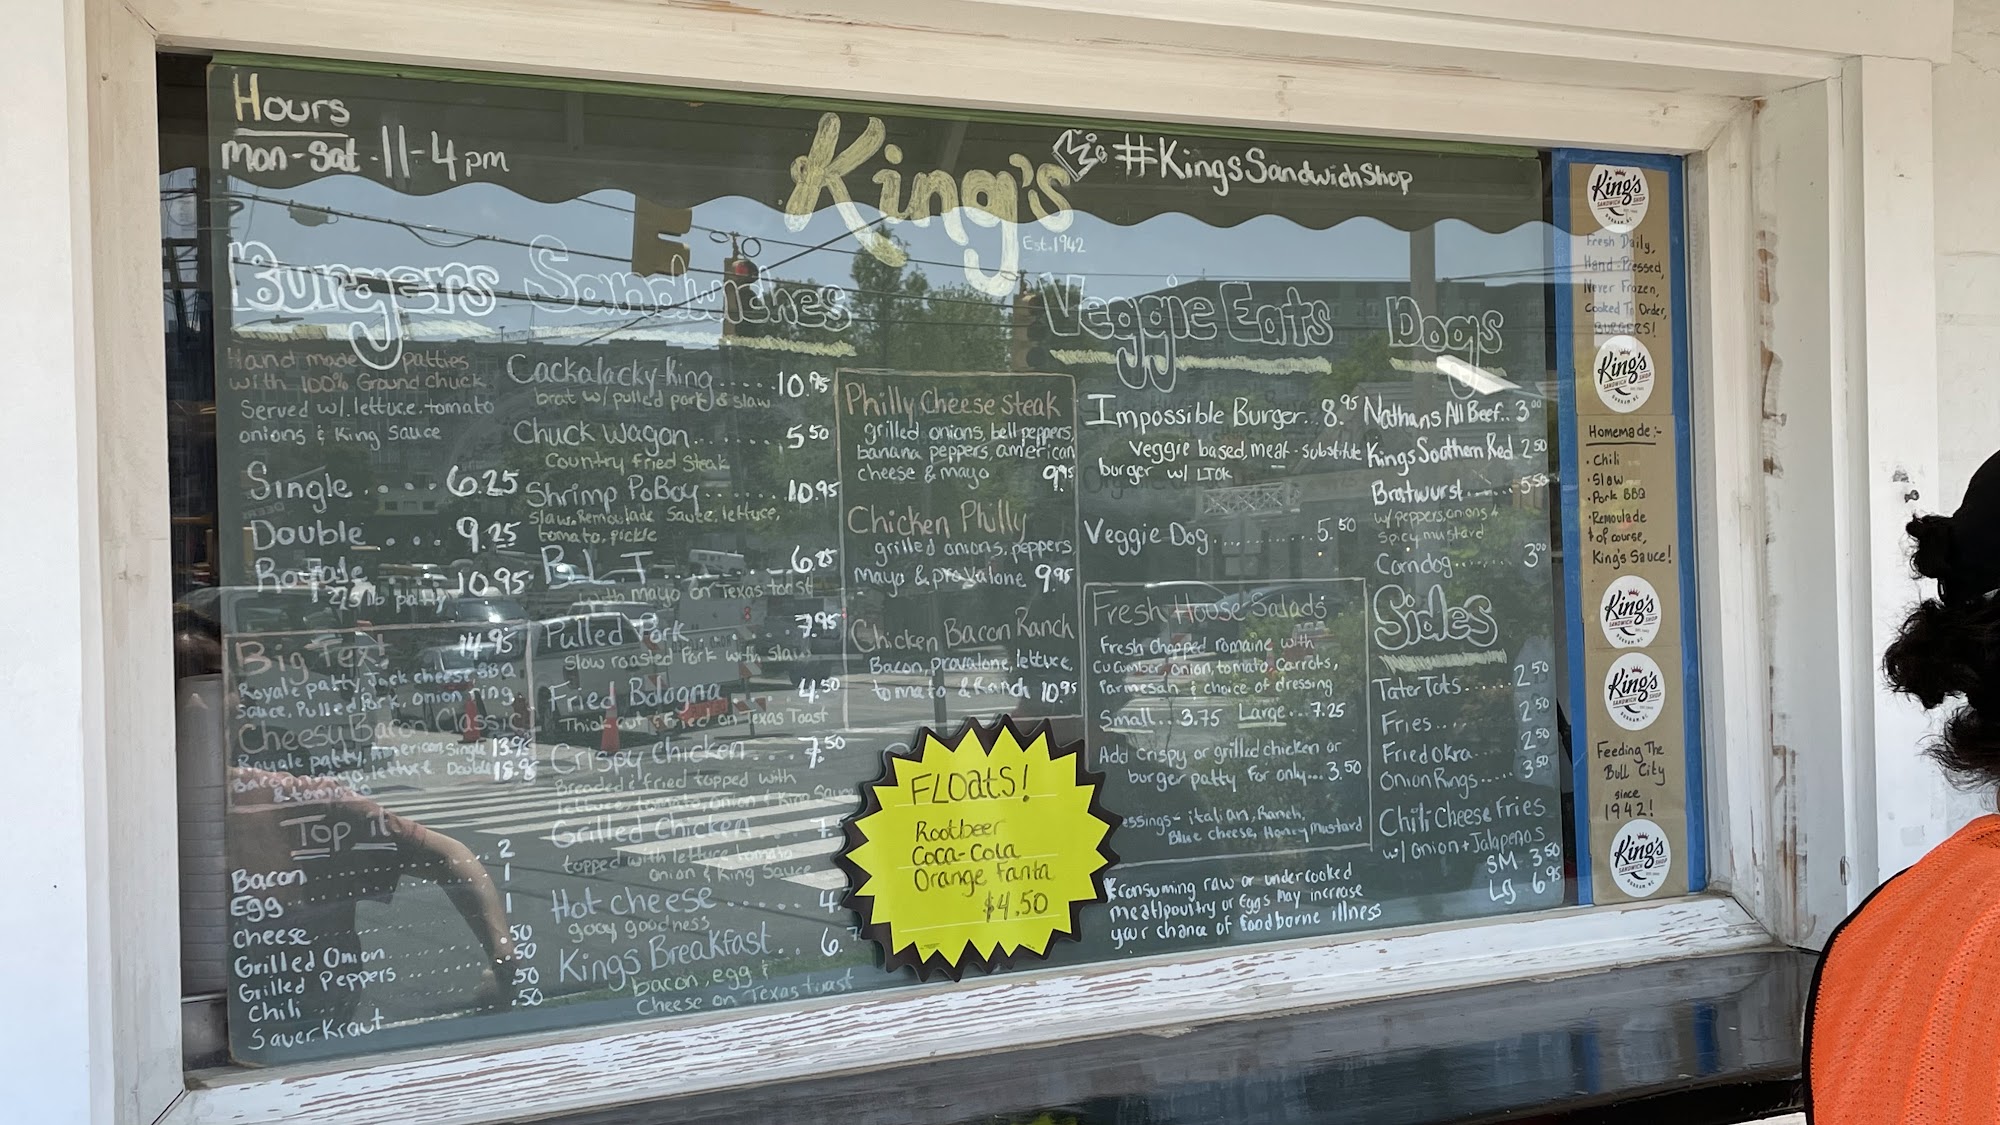 Hours
Mon-Sat-11-4pm
King's
Est. 1942
#KingsSandwichShop
Burgers
Hand made patties
with 100% Ground chuck
Served w/ lettuce, tomato
onions & King Sauce
Single.....6.25
Double....9.25
Royale.....10.95
.75 lb patty
Big Tex! 14.95
Royale patty, Jack cheese, BBQ
Sauce, Pulled Pork, onion ring
Cheesy Bacon Classic
Royale patty, American Single 13.95
lettuce Double 18.95
& tomato
Top it
Bacon 2
Egg 1
Cheese 1
Grilled Onion .50
Grilled Peppers .50
Chili .50
Sauer Kraut .50
Sandwiches
Cackalacky-King.....10.95
brat w/ pulled pork & slaw
Chuck Wagon.......5.50
Country Fried Steak
Shrimp PoBoy......10.95
Slaw, Remoulade Saute, lettuce,
tomato, pickle
BLT.......6.25
with mayo on Texas toast
Pulled Pork.....7.95
Slow roasted Pork with Slaw
Fried Bologna.....4.50
Thick cut & Fried on Texas Toast
Crispy Chicken....7.50
Breaded & fried topped with
lettuce, tomato, onion & King Sauce
Grilled Chicken....7.
topped with lettuce tomato
onion & King Sauce
Hot cheese.......4.
gooy goodness
Kings Breakfast..6.
bacon, egg &
Cheese on Texas toast
Philly Cheese Steak
grilled onions, bell peppers,
banana peppers, american
cheese & mayo 9.95
Chicken Philly
grilled onions, peppers
Mayo & provalone 9.95
Chicken Bacon Ranch
Bacon, provalone, lettuce,
tomato & Ranch 10.95
FLOats!
Rootbeer
Coca-Cola
Orange Fanta
$4.50
Veggie Eats
Impossible Burger...8.95
Veggie based, meat-substitute
burger w/ LTOK
Veggie Dog..........5.50
Fresh House Salads
Fresh chopped romaine with
cucumber, onion, tomato, carrots,
Parmesan & choice of dressing
Small...3.75 Large...7.25
Add crispy or grilled chicken or
burger patty For only...3.50
essings- italian, Ranch,
Blue cheese, Honey Mustard
*consuming raw or undercooked
meat/poultry or Eggs May increase
your chance of foodborne illness
Dogs
Nathans All Beef..3.00
Kings Southern Red 2.50
Bratwurst.......5.50
w/ peppers, onions &
spicy mustard
Corndog...3.00
Sides
Tater Tots......2.50
Fries....2.50
Fried Okra...2.50
Onion Rings.....3.50
Chili Cheese Fries
w/ Onion + Jalapenos
SM 3.50
LG 6.95
King's
SANDWICH SHOP
DURHAM, NC
Fresh Daily,
Hand-Pressed,
Never Frozen,
Cooked To Order,
BURGERS!
King's
SANDWICH SHOP
Homemade:-
• Chili
• Slaw
• Pork BBQ
• Remoulade
& of course,
King's Sauce!
King's
SANDWICH SHOP
DURHAM, NC
King's
SANDWICH SHOP
DURHAM, NC
Feeding The
Bull City
since
1942!
King's
SANDWICH SHOP
DURHAM, NC